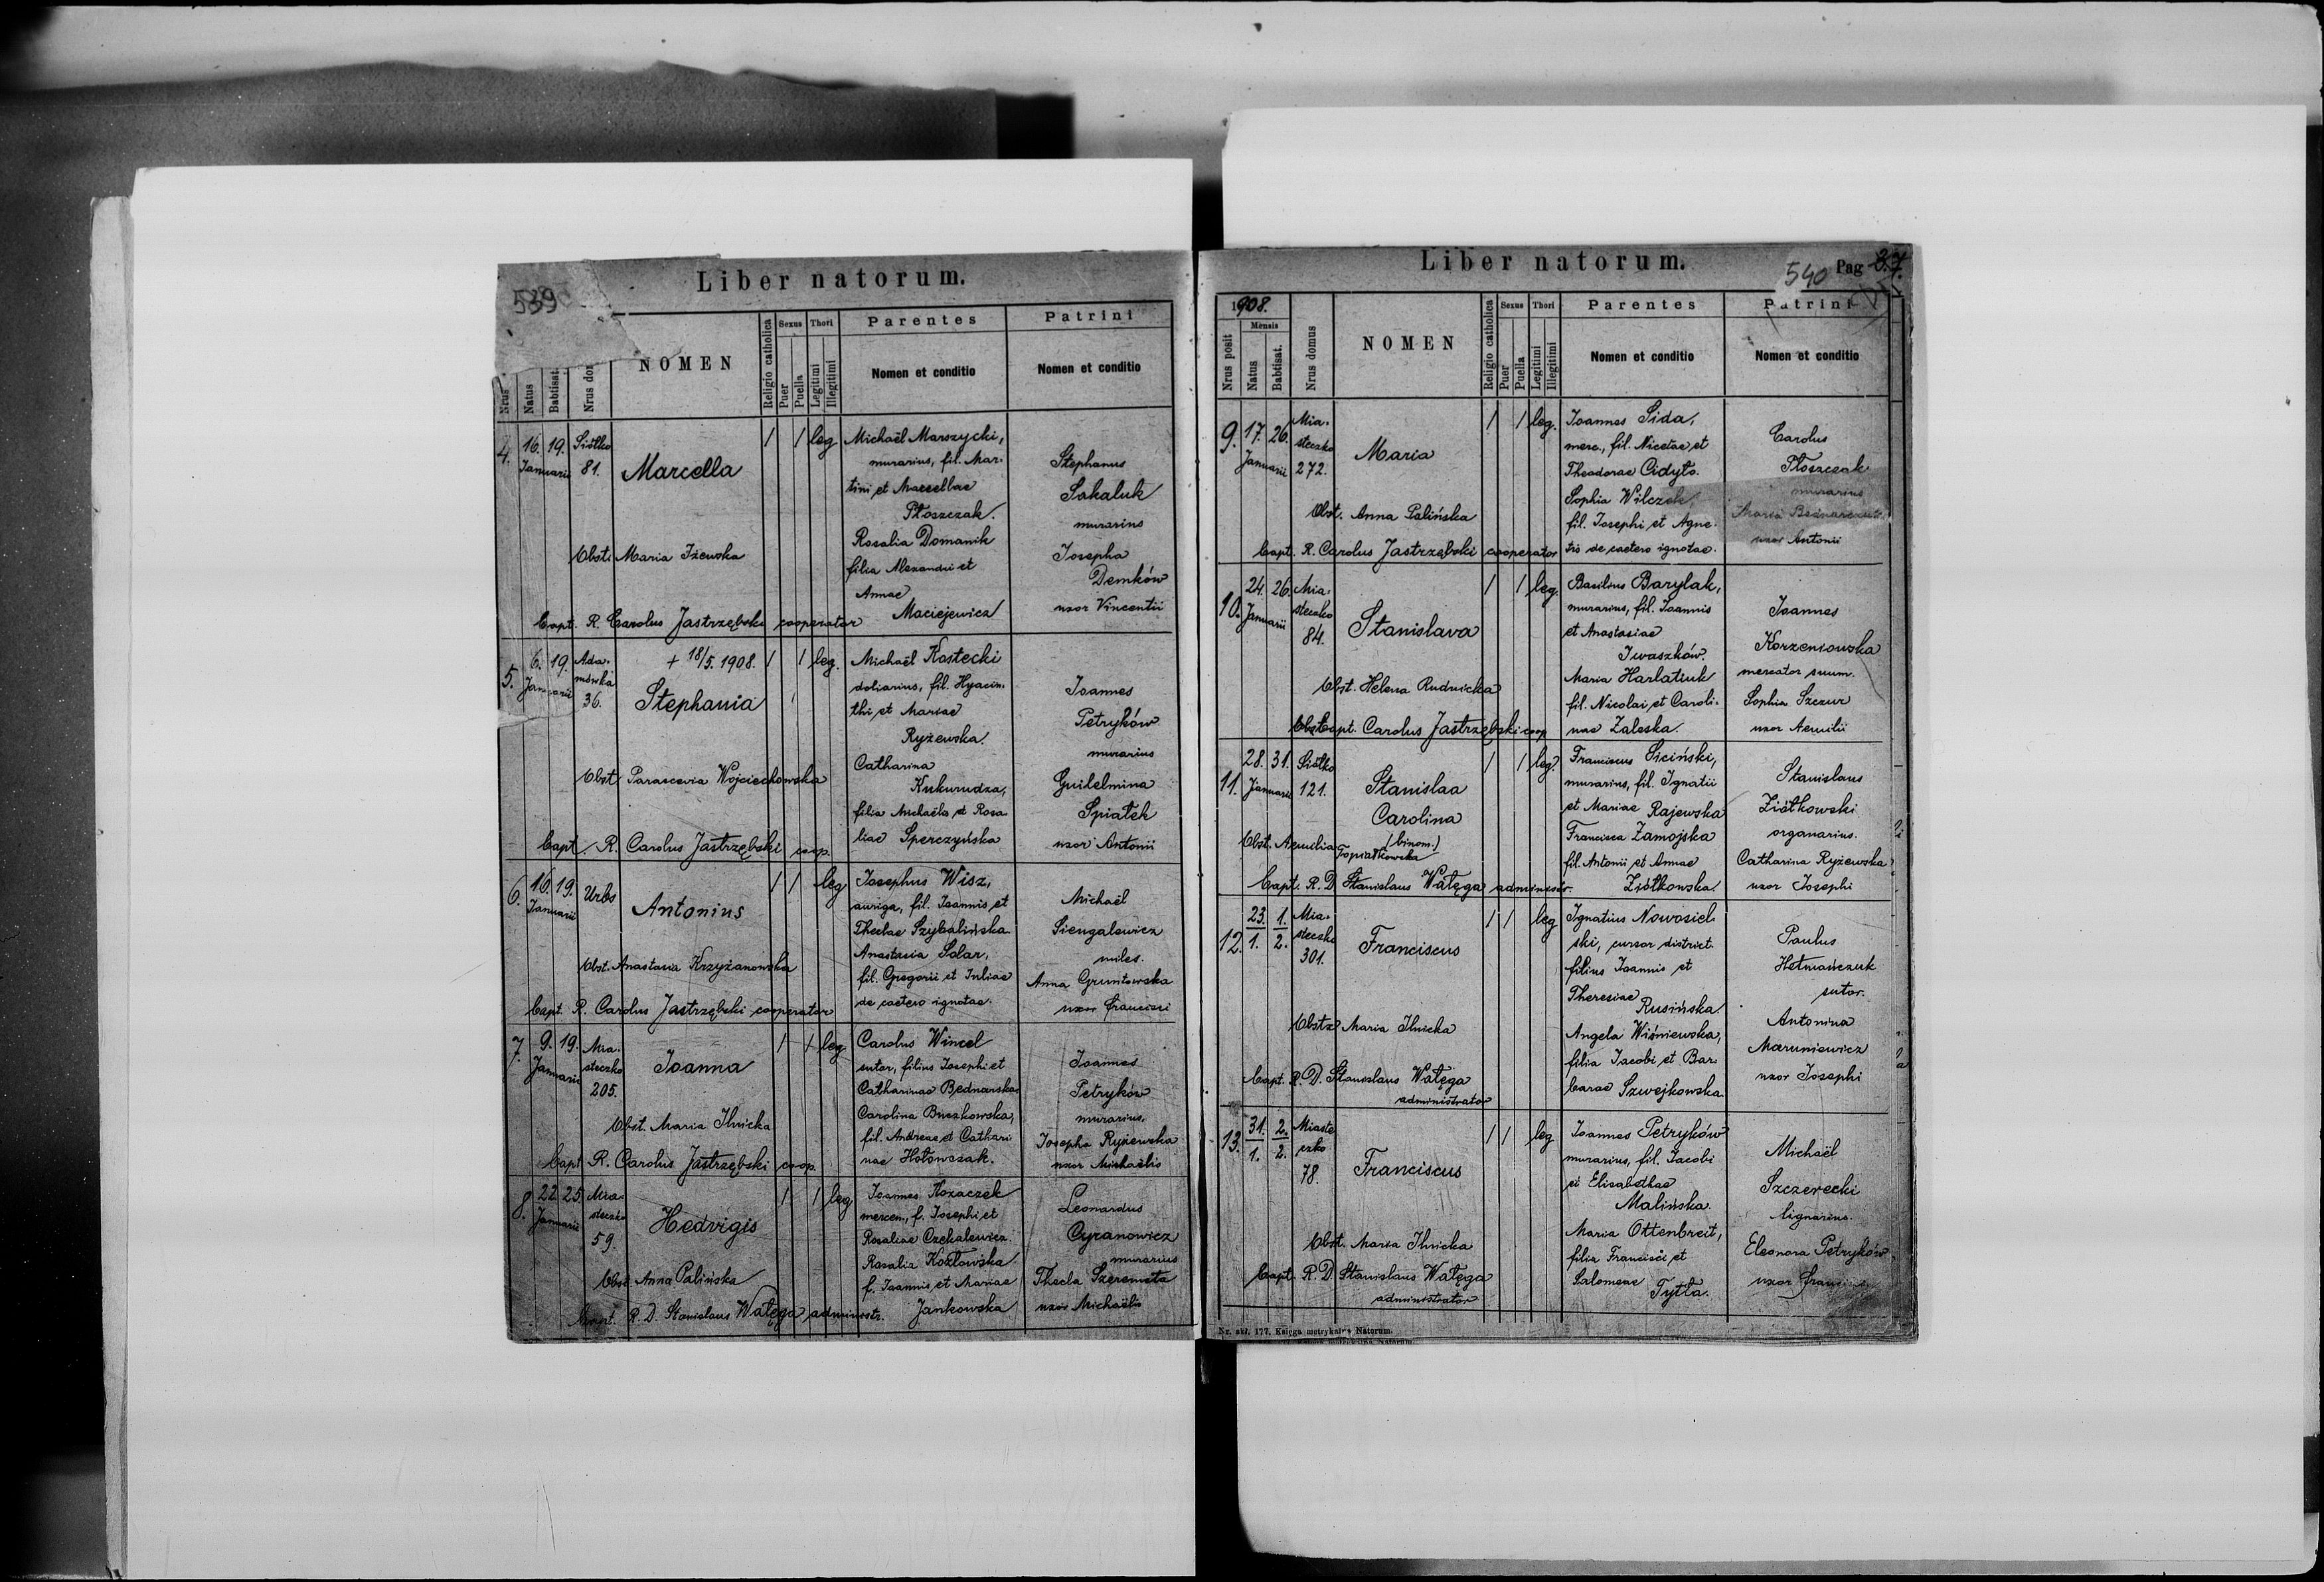 539
Liber natorum.
Nrus
Natus
Babtisat.
Nrus dom
NOMEN
Religio catholica
Sexus
Puer
Puella
Thori
Legitimi
Illegitimi
Parentes
Nomen et conditio
Patrini
Nomen et conditio
4.
16. 19.
Januarii
Siółko
81.
Marcella
1 1 leg
Obst. Maria Iżewska
Bapt. R. Carolus Jastrzębski cooperator
Michaël Marszycki,
murarius, fil. Mar-
tini et Marcellae
Płoszczak.
Rosalia Domanik
filia Alexandri et
Annae
Maciejewicz
Stephanus
Sakaluk
murarius
Josepha
Demków
uxor Vincentii
5.
6. 19.
Januarii
Ada-
mówka
36.
+ 18/5. 1908.
Stephania
1 1 leg.
Obst. Parascevia Wojciechowska
Bapt. R. Carolus Jastrzębski coop.
Michaël Kostecki
doliarius, fil. Hyacin-
thi et Mariae
Ryżewska.
Catharina
Kukurudza,
filia Michaëlis et Rosa
liae Sperczyńska
Joannes
Petryków
murarius
Guilelmina
Spiatek
uxor Antonii
6.
16. 19.
Januarii
Urbs
Antonius
1 1 leg
Obst. Anastasia Krzyżanowska
Bapt. R. Carolus Jastrzębski cooperator
Josephus Wisz,
auriga, fil. Joannis et
Theclae Szybalińska.
Anastasia Solar,
fil. Gregorii et Juliae
de caetero ignotae.
Michaël
Siengalewicz
miles.
Anna Gruntowska
uxor Francisci
7.
9. 19.
Januarii
Mia-
steczko
205.
Joanna
1 1 leg
Obst. Maria Ilnicka
Bapt. R. Carolus Jastrzębski coop.
Carolus Wincel
sutor, filius Josephi et
Catharinae Bednarska
Carolina Buczkowska,
fil. Andreae et Cathari
nae Hołowczak.
Joannes
Petryków
murarius.
Josepha Ryżewska
uxor Michaëlis
8.
22 25
Januarii
Mia-
steczko
59.
Hedvigis
1 1 leg
Obst. Anna Palińska
Bapt. R. D. Stanislaus Wałęga administr.
Joannes Kozaczek
mercen., f. Josephi et
Rosaliae Czekalewicz.
Rosalia Kozłowska
f. Joannis et Mariae
Jankowska
Leonardus
Cyranowicz
murarius
Thecla Szeremeta
uxor Michaëlis
Liber natorum.
540
Pag 27.
1908.
Nrus posit
Mensis
Natus
Babtisat.
Nrus domus
NOMEN
Religio catholica
Sexus
Puer
Puella
Thori
Legitimi
Illegitimi
Parentes
Nomen et conditio
Patrini
Nomen et conditio
9.
17. 26.
Januarii
Mia-
steczko
272.
Maria
1 1 leg.
Obst. Anna Palińska
Bapt. R. Carolus Jastrzębski cooperator
Joannes Sida,
merc., fil. Nicetae et
Theodorae Cidyło.
Sophia Wilczek
fil. Josephi et Agne-
tis de caetero ignotae.
Carolus
Płoszczak
murarius
Maria
uxor Antonii
10.
24. 26.
Januarii
Mia-
steczko
84.
Stanislava
1 1 leg.
Obst. Helena Rudnicka
Bapt. Carolus Jastrzębski coop
Basilius Barylak,
murarius, fil. Joannis
et Anastasiae
Iwaszków.
Maria Harlatiuk
fil. Nicolai et Caroli-
nae Zaleska.
Joannes
Korzeniowska
mercator suum.
Sophia Szczur
uxor Aemilii
11.
28. 31.
Januarii
Siółko
121.
Stanislaa
Carolina
(binom.)
1 1 leg.
Obst. Aemilia Topiatkowska
Bapt. R. D Stanislaus Wałęga administr.
Franciscus Siciński,
murarius, fil. Ignatii
et Mariae Rajewska
Francisca Zamojska
fil. Antonii et Annae
Ziółkowska.
Stanislaus
Ziółkowski
organarius.
Catharina Ryżewska
uxor Josephi
12.
23. 1.
1. 2.
Mia-
steczko
301.
Franciscus
1 1 leg
Obstx Maria Ilnicka
Bapt. R. D. Stanislaus Wałęga
administrator
Ignatius Nowosiel-
ski, cursor district.
filius Joannis et
Theresiae
Rusińska.
Angela Wiśniewska,
filia Jacobi et Bar-
barae Szwejkowska.
Paulus
Hetmańczuk
sutor.
Antonina
Maruniewicz
uxor Josephi
13.
31. 2.
1. 2.
Miaste
czko
78.
Franciscus
1 1 leg
Obst. Maria Ilnicka
Bapt. R. D. Stanislaus Wałęga
administrator
Joannes Petryków
murarius, fil. Jacobi
et Elisabethae
Malińska.
Maria Ottenbreit,
filia Francisci et
Salomeae
Tytla.
Michaël
Szczerecki
lignarius.
Eleonora Petryków
uxor Francisci
Nr. skł. 177. Księga metrykalna Natorum.